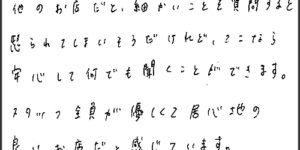 他のお店だと、細かいことを質問すると
怒られてしまいそうだけれど、ここなら
安心して何でも聞くことができます。
スタッフ全員が優しくて居心地の
良いお店だと感じています。